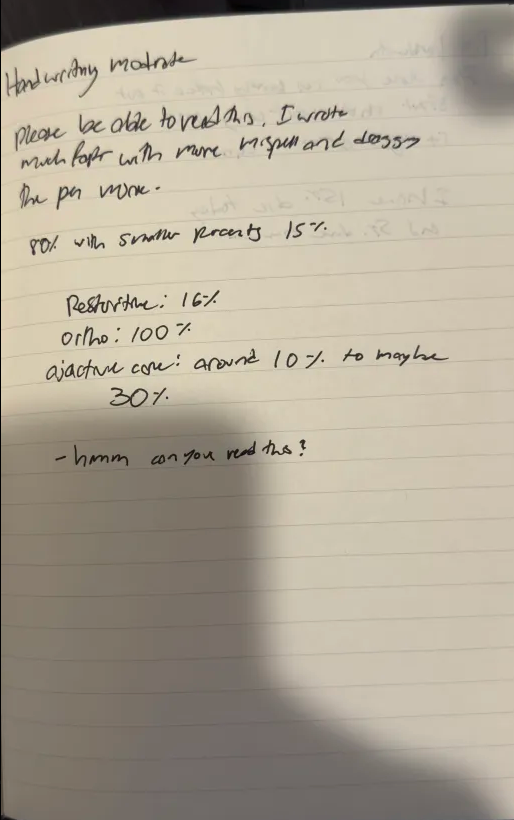 Handwriting modrate
Please be able to read this. I wrote
much fastr with more mispell and dragging
the pen more.
80% with smaller percents 15%
Restoritive: 16%
Ortho: 100%
ajactive care: around 10% to maybe
30%
- hmm can you read this?